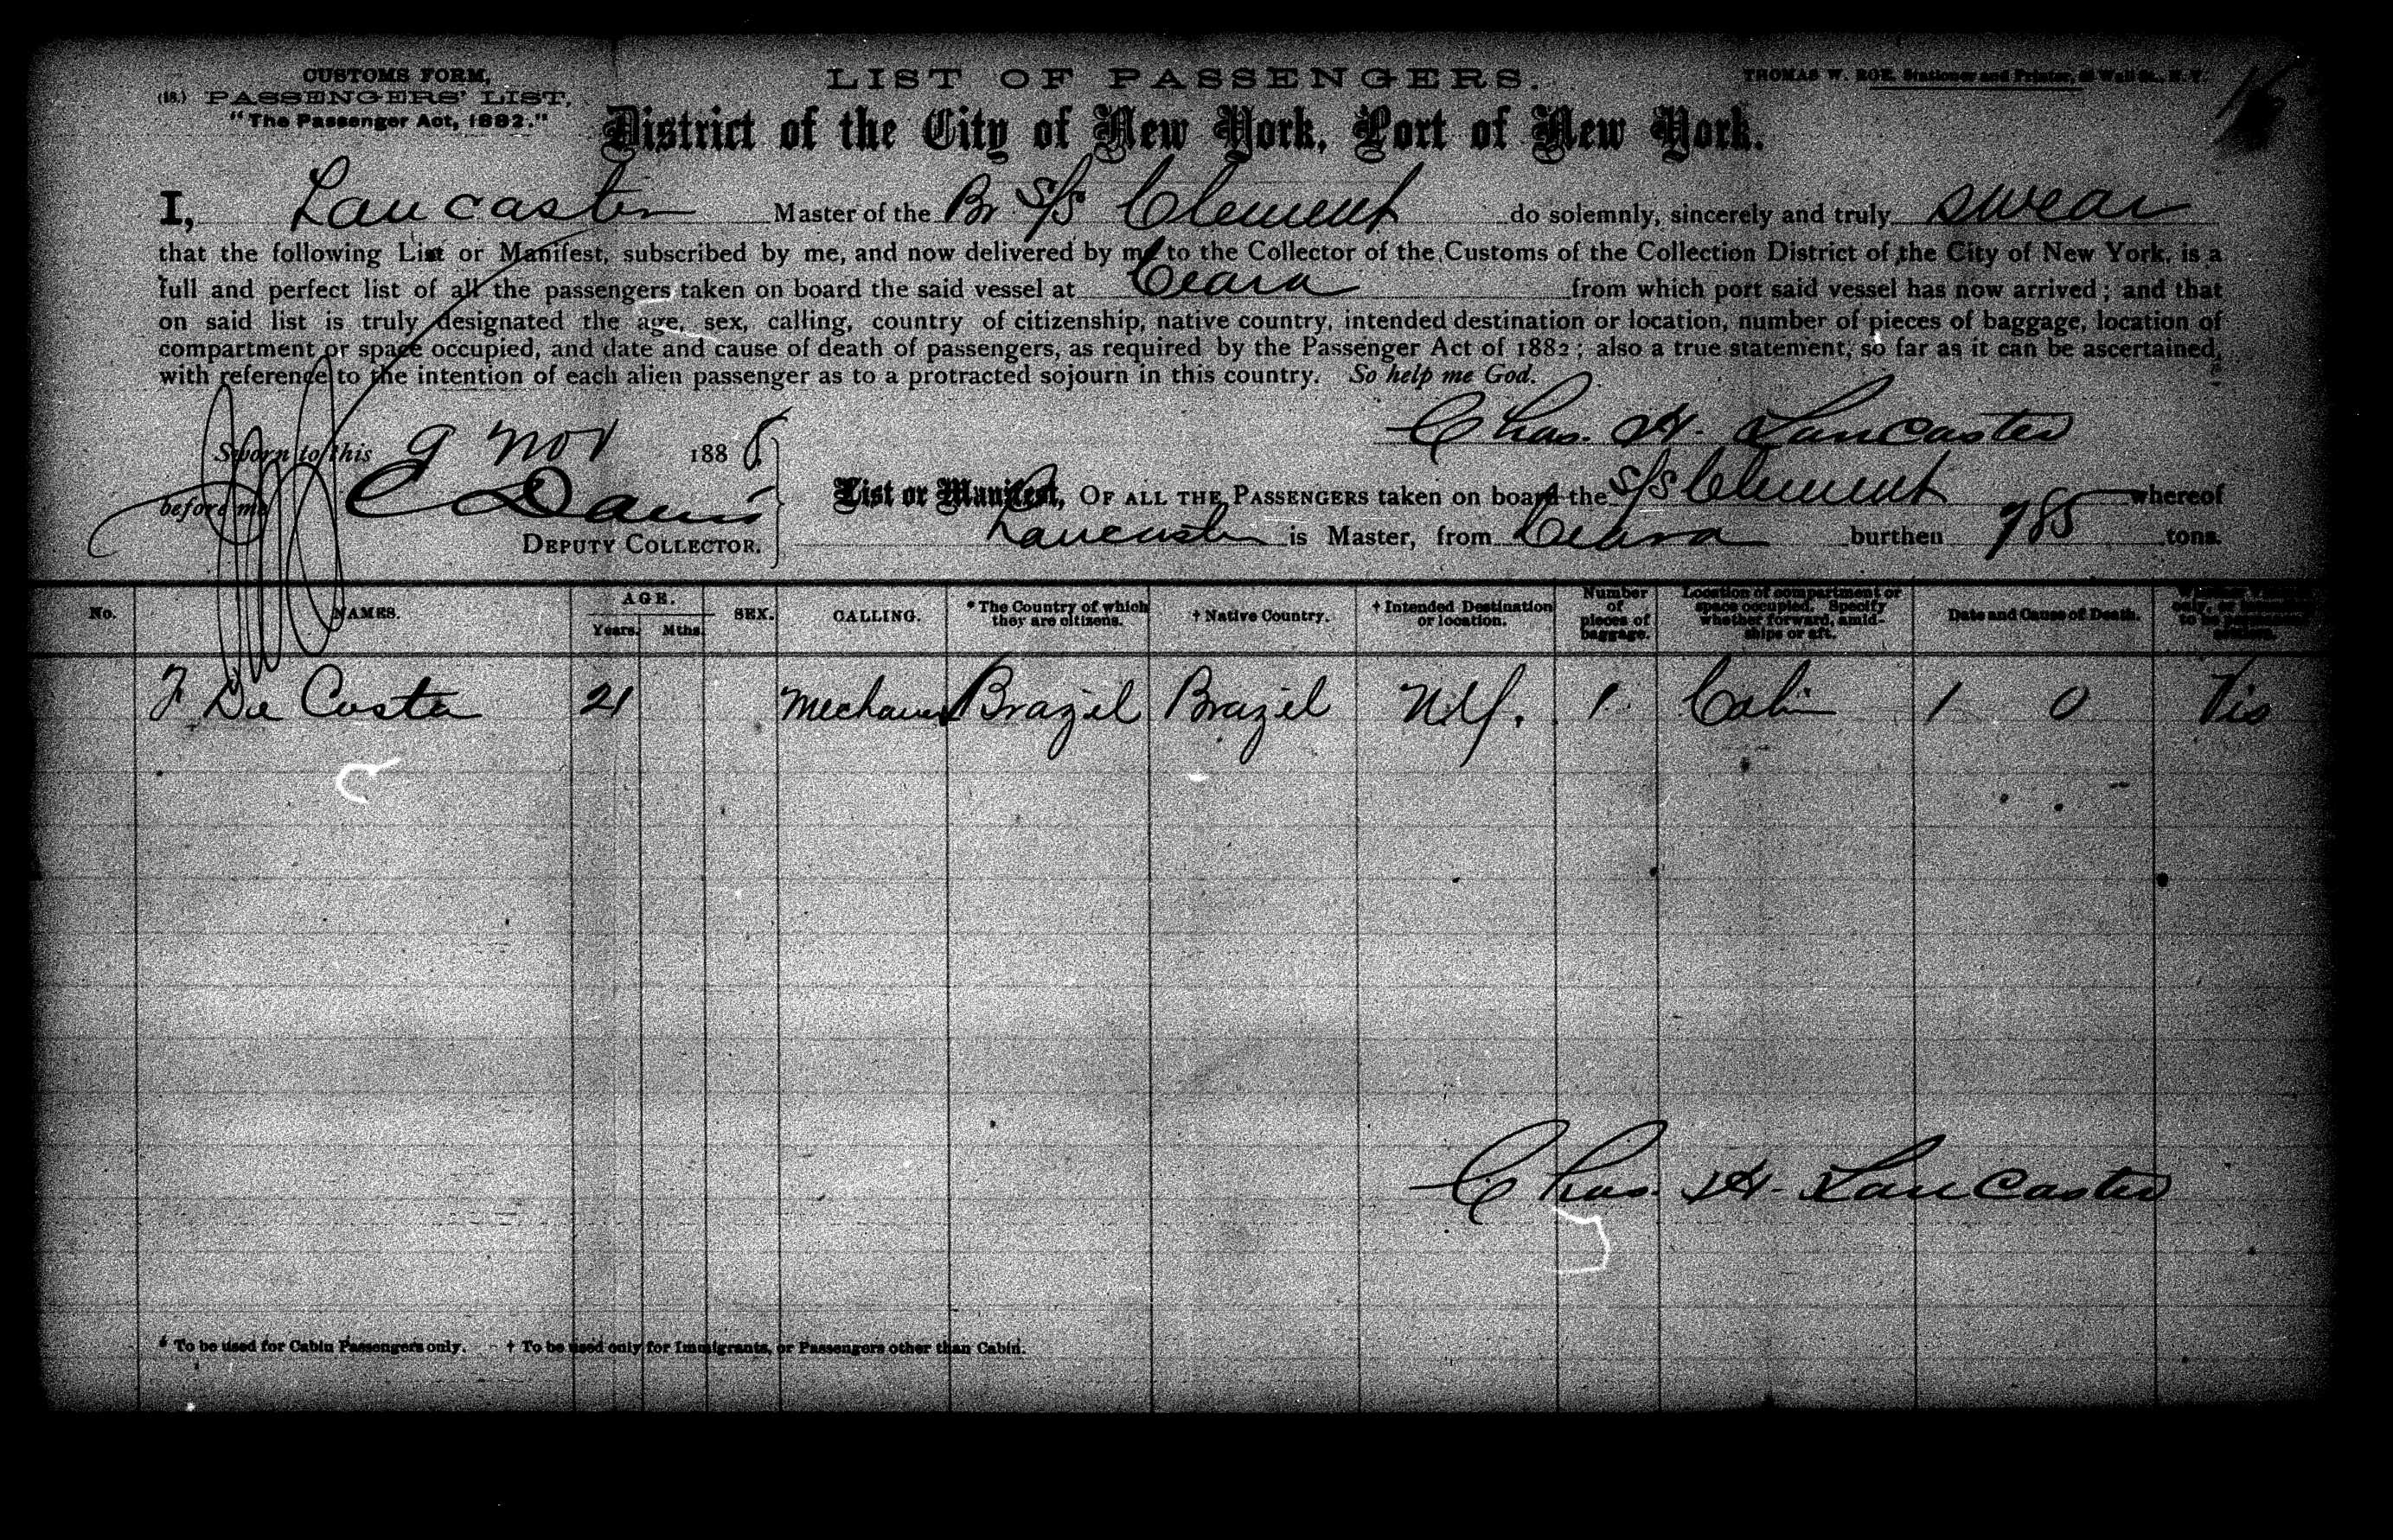 CUSTOMS FORM,
(18.) PASSENGERS' LIST,
"The Passenger Act, 1882."
LIST OF PASSENGERS.
THOMAS W. ROE, Stationer and Printer, Wall St., N. Y.
District of the City of New York, Port of New York.
I, Lancaster Master of the Br S/S Clement do solemnly, sincerely and truly swear
that the following List or Manifest, subscribed by me, and now delivered by me to the Collector of the Customs of the Collection District of the City of New York, is a
full and perfect list of all the passengers taken on board the said vessel at Ceara from which port said vessel has now arrived; and that
on said list is truly designated the age, sex, calling, country of citizenship, native country, intended destination or location, number of pieces of baggage, location of
compartment or space occupied, and date and cause of death of passengers, as required by the Passenger Act of 1882; also a true statement, so far as it can be ascertained,
with reference to the intention of each alien passenger as to a protracted sojourn in this country. So help me God.
Chas. H. Lancaster
Sworn to this 9 Nov 188
before me C Davis
DEPUTY COLLECTOR.
List or Manifest, OF ALL THE PASSENGERS taken on board the S/S Clement whereof
Lancaster is Master, from Ceara burthen 785 tons.
No. NAMES. AGE. Years. Mths. SEX. CALLING. * The Country of which they are citizens. † Native Country. † Intended Destination or location. Number of pieces of baggage. Location of compartment or space occupied. Specify whether forward, amidships or aft. Date and Cause of Death.
F Da Costa 21 Mechanic Brazil Brazil N.Y. 1 Cabin 1 0 Vis
Chas. H. Lancaster
* To be used for Cabin Passengers only. † To be used only for Immigrants, or Passengers other than Cabin.